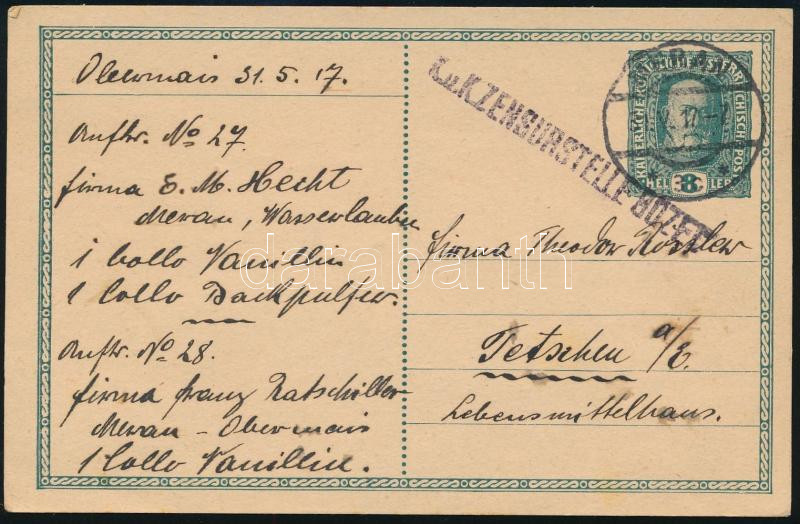 Obermais 31.5.17.
Auftr. No 27.
Firma E. M. Hecht
Meran, Wasserlauben
1 Collo Vanillin
1 Collo Backpulver.
Auftr. No 28.
Firma Franz Ratschiller
Meran - Obermais
1 Collo Vanillin.
K.u.K. ZENSURSTELLE BOZEN
KAISERLICHE KÖNIGLICHE ÖSTERREICHISCHE POST
8
HELLER
Firma Theodor
Tetschen a/E.
Lebensmittelhaus.
darabanth